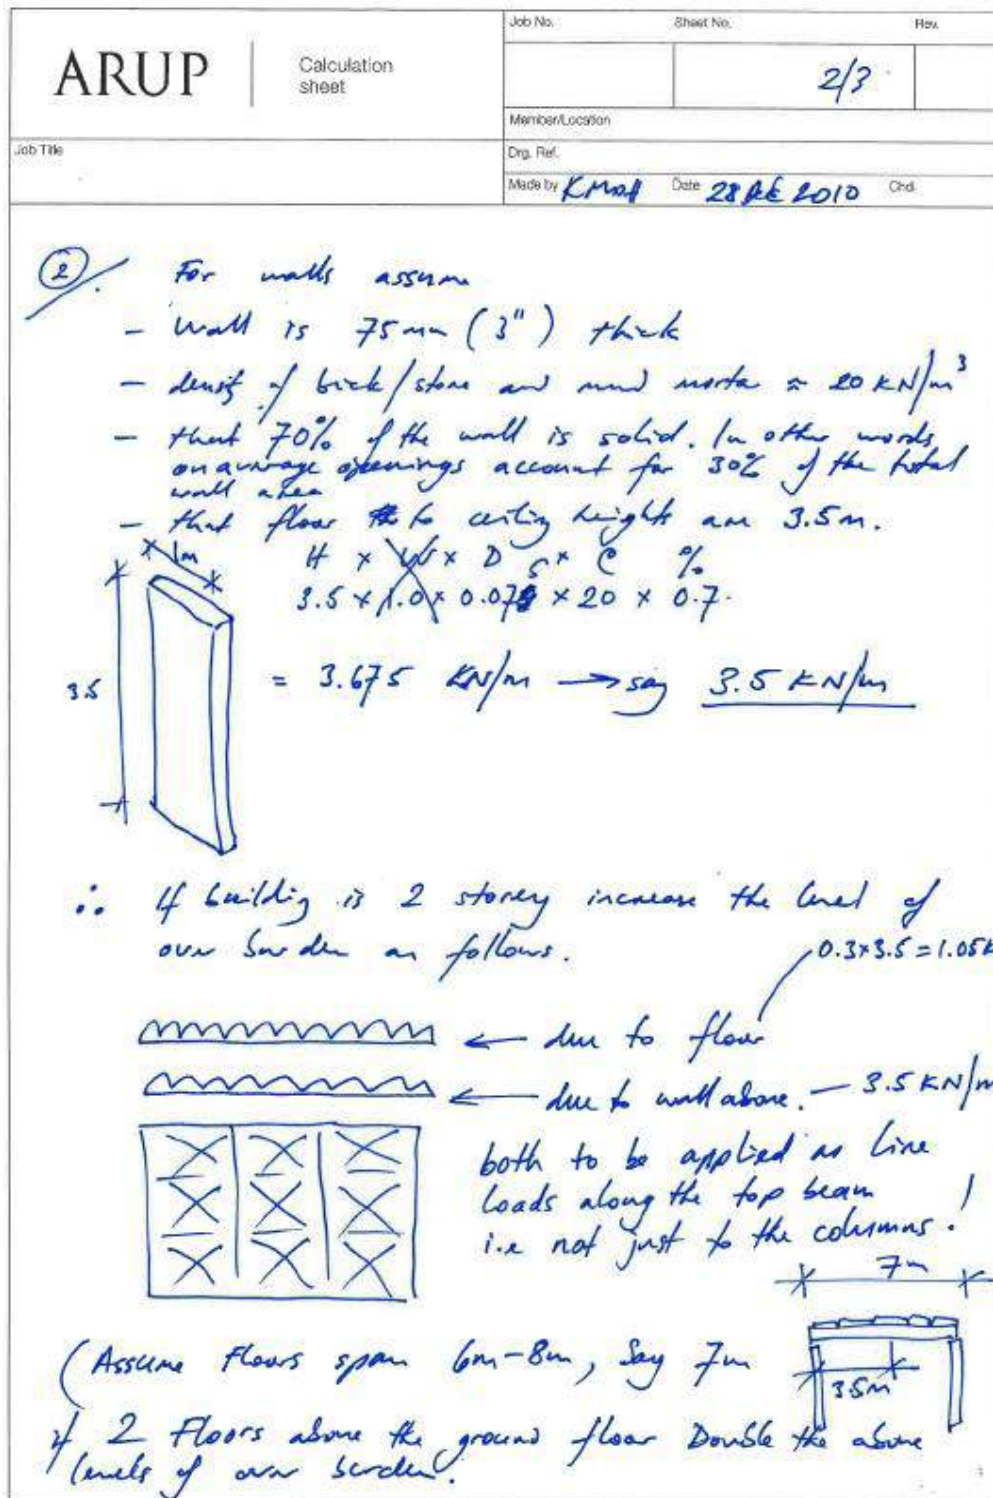 ARUP
Calculation
sheet
Job No.
Sheet No.
Rev.
2/3
Member/Location
Job Title
Drg. Ref.
Made by
Date 28 2010
Chd.
2
For walls assume
- Wall is 75mm (3") thick
- density of brick/stone and mud mortar ≈ 20 KN/m³
- that 70% of the wall is solid. In other words
on average openings account for 30% of the total
wall area
- that floor to ceiling heights are 3.5m.
1m
H x W x D x ρ %
3.5 x 1.0 x 0.075 x 20 x 0.7.
3.5
= 3.675 KN/m → say 3.5 KN/m
∴ If building is 2 storey increase the level of
over burden as follows.
0.3x3.5 = 1.05K
← due to floor
← due to wall above. - 3.5 KN/m
both to be applied as line
loads along the top beam
i.e not just to the columns!
7m
(Assume Floors span 6m-8m, Say 7m
3.5m
if 2 Floors above the ground floor Double the above
levels of over burden.